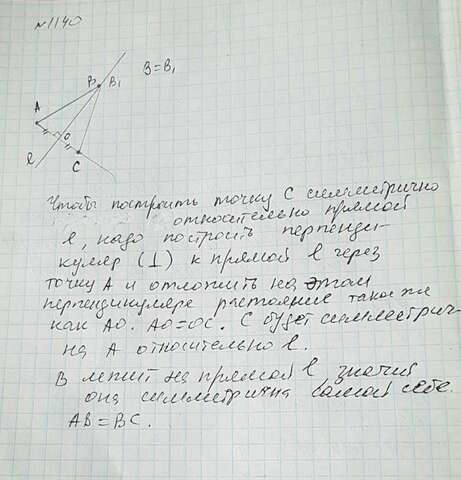 №1140
B B₁ B=B₁
A
O
l
C
Чтобы построить точку C симметрично
относительно прямой
l, надо построить перпенди-
куляр (⊥) к прямой l через
точку A и отложить на этом
перпендикуляре растояние такое же
как AO. AO=OC. C будет симметрич-
на A относительно l.
B лежит на прямой l значит
она симметрична самой себе.
AB=BC.